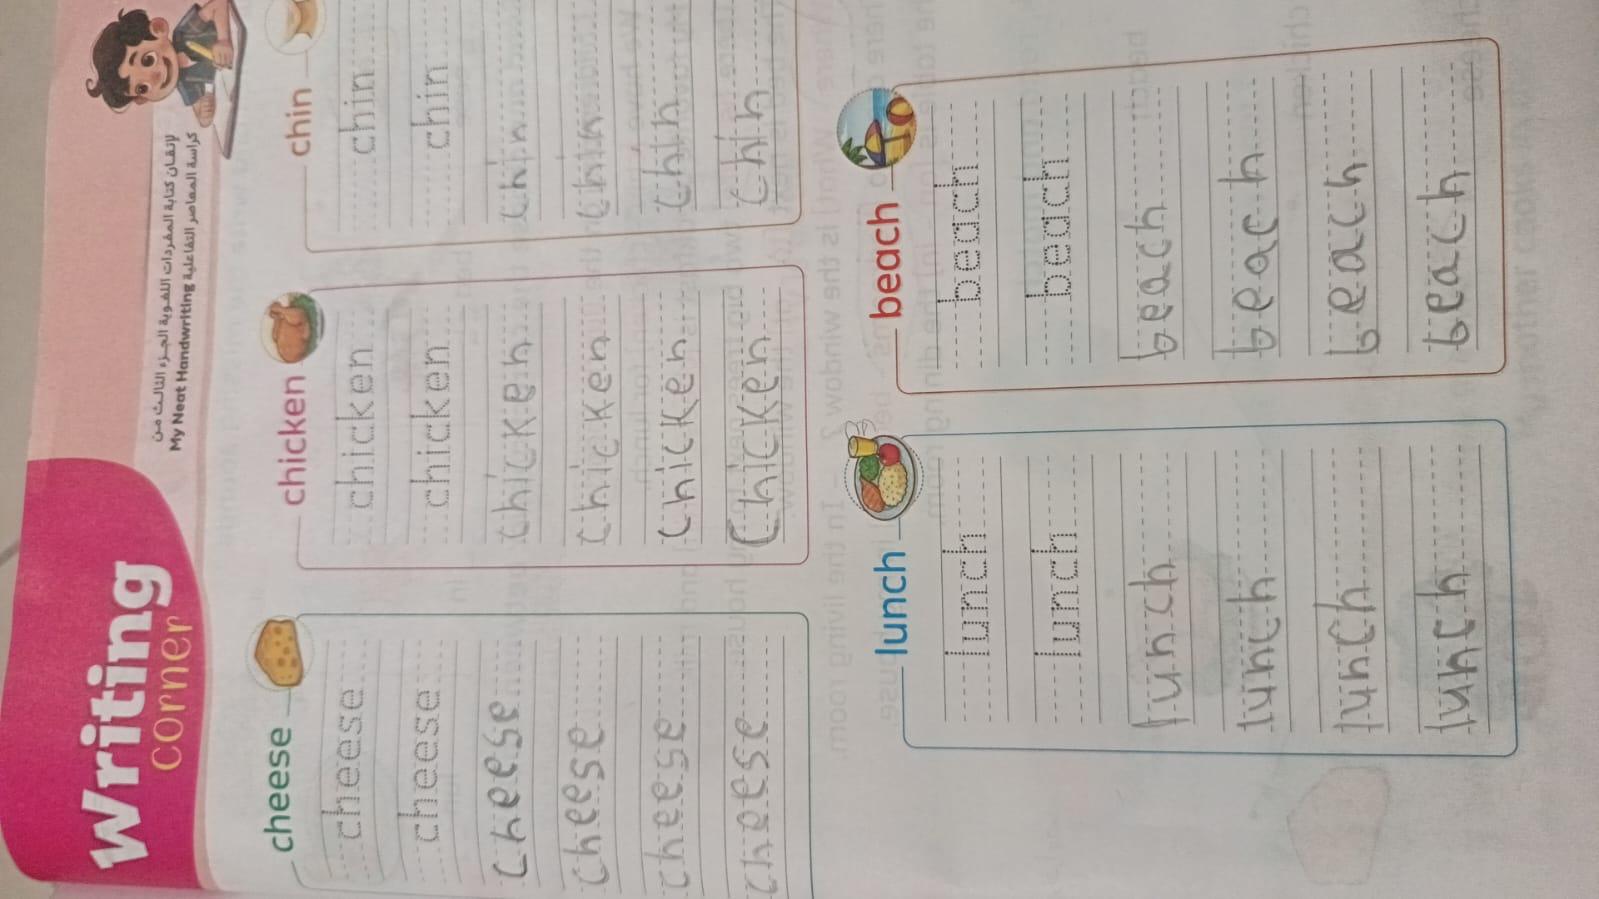 Writing
corner
لإتقان كتابة المفردات اللغوية الجزء الثالث من
كراسة المعاصر التفاعلية My Neat Handwriting
cheese
cheese
cheese
cheese
cheese
cheese
cheese
chicken
chicken
chicken
chicken
chicken
chicken
chicken
chin
chin
chin
chin
chin
chin
chin
lunch
lunch
lunch
lunch
lunch
lunch
lunch
beach
beach
beach
beach
beach
beach
beach